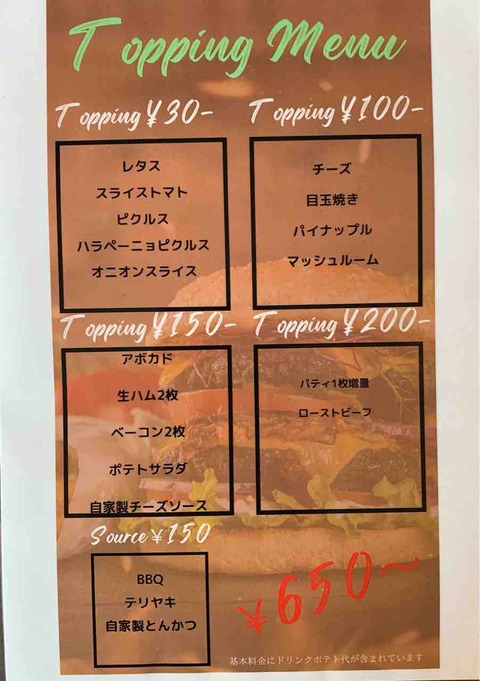 Topping Menu
Topping ¥30-
レタス
スライストマト
ピクルス
ハラペーニョピクルス
オニオンスライス
Topping ¥100-
チーズ
目玉焼き
パイナップル
マッシュルーム
Topping ¥150-
アボカド
生ハム2枚
ベーコン2枚
ポテトサラダ
自家製チーズソース
Topping ¥200-
パティ1枚増量
ローストビーフ
Source ¥150
BBQ
テリヤキ
自家製とんかつ
¥650~
基本料金にドリンクポテト代が含まれています